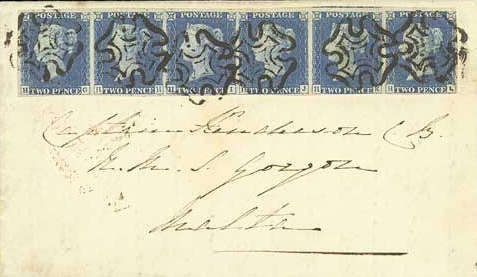 POSTAGE POSTAGE POSTAGE POSTAGE POSTAGE POSTAGE
H G H H H I H J H K H L
TWO PENCE TWO PENCE TWO PENCE TWO PENCE TWO PENCE TWO PENCE
Captain Henderson C.B.
H.M.S. Gorgon
Malta